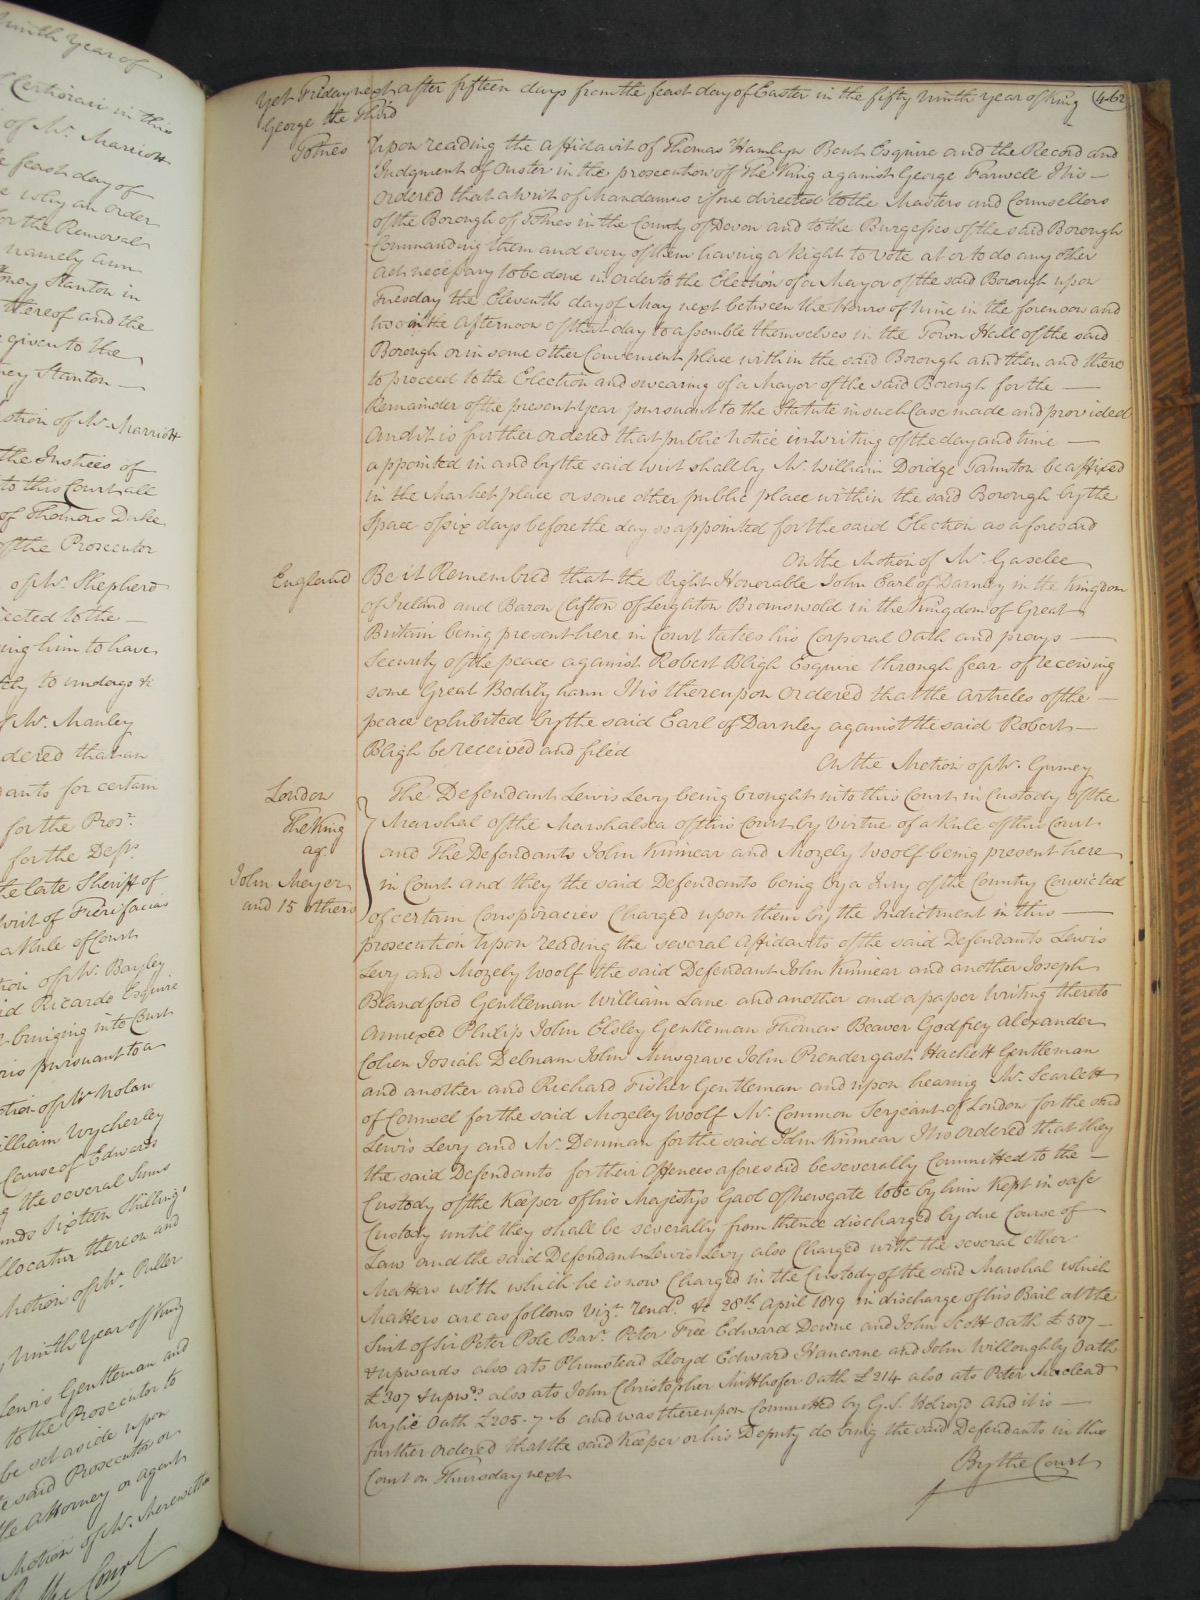 Ninth Year of
Certiorari in this
of Mr. Marriott
feast day of
why an Order
for the Removal
namely Ann
Stanton in
thereof and the
given to the
Stanton —
Motion of Mr. Marriott
the Justices of
to this Court all
of Thomas Duke
of the Prosecutor
of Mr. Shepherd
directed to the —
ing him to have
to undergo &c
of Mr. Manley
dered that an
for certain
for the Pros.r
for the Defts.
the late Sheriff of
Writ of Fieri facias
a Rule of Court
tion of Mr. Bayley
id Ricardo Esquire
bringing into Court
pursuant to a
tion of Mr. Nolan
illiam Wycherley
Cause of Edward
the several Sums
Sixteen Shillings
llocatur thereon and
Motion of Mr. Puller
Ninth Year of King
Lewis Gentleman and
to the Prosecutor to
be set aside upon
said Prosecutor or
Attorney or Agent
Motion of Mr. Merewether
By the Court
Yet Friday next after fifteen days from the feast day of Easter in the fifty Ninth Year of King 462
George the Third
Totnes Upon reading the Affidavit of Thomas Hamlyn Bent Esquire and the Record and
Judgment of Ouster in the prosecution of The King against George Farwell It is —
Ordered that a Writ of Mandamus issue directed to the Masters and Counsellors
of the Borough of Totnes in the County of Devon and to the Burgesses of the said Borough
Commanding them and every of them having a Right to vote at or to do any other
act necessary to be done in order to the Election of a Mayor of the said Borough upon
Tuesday the Eleventh day of May next between the Hours of Nine in the forenoon and
two in the Afternoon of that day to assemble themselves in the Town Hall of the said
Borough or in some other Convenient place within the said Borough and then and there
to proceed to the Election and swearing of a Mayor of the said Borough for the —
Remainder of the present Year pursuant to the Statute in such Case made and provided
And it is further ordered that public notice in Writing of the day and time —
appointed in and by the said writ shall by Mr. William Doidge Taunton be affixed
in the Market place or some other public place within the said Borough by the
Space of six days before the day so appointed for the said Election as aforesaid
On the Motion of Mr. Gaselee
England Be it Remembred that the Right Honorable John Earl of Darnley in the Kingdom
of Ireland and Baron Clifton of Leighton Bromswold in the Kingdom of Great
Britain being present here in Court takes his Corporal Oath and prays —
Security of the peace against Robert Bligh Esquire through fear of receiving
some Great Bodily harm It is thereupon Ordered that the Articles of the —
peace exhibited by the said Earl of Darnley against the said Robert —
Bligh be received and filed
On the Motion of Mr. Gurney
London The Defendant Lewis Levy being brought into this Court in Custody of the
The King Marshal of the Marshalsea of this Court by Virtue of a Rule of this Court
agt. and The Defendants John Kinnear and Mozely Woolf being present here
John Meyer in Court and they the said Defendants being by a Jury of the Country Convicted
and 15 others of certain Conspiracies Charged upon them by the Indictment in this —
prosecution Upon reading the several Affidavits of the said Defendants Lewis
Levy and Mozely Woolf the said Defendant John Kinnear and another Joseph
Blandford Gentleman William Lane and another and a paper Writing thereto
Annexed Philip John Elsley Gentleman Thomas Beaver Godfrey Alexander
Cohen Josiah Debnam John Musgrave John Prendergast Hackett Gentleman
and another and Richard Fisher Gentleman and upon hearing Mr. Scarlett
of Counsel for the said Mozeley Woolf Mr. Common Serjeant of London for the said
Lewis Levy and Mr. Denman for the said John Kinnear It is Ordered that they
the said Defendants for their Offences aforesaid be severally Committed to the —
Custody of the Keeper of his Majestys Gaol of Newgate to be by him Kept in safe
Custody until they shall be severally from thence discharged by due Course of
Law and the said Defendant Lewis Levy also Charged with the several other
Matters with which he is now Charged in the Custody of the said Marshal which
Matters are as follows Vizt. Rendd. &c 28th April 1819 in discharge of his Bail at the
Suit of Sir Peter Pole Bart. Peter Free Edward Down and John Scott Oath £507 —
& upwards also ats Plumstead Lloyd Edward Hancorne and John Willoughby Oath
£307 & upwds. also ats John Christopher Oath £214 also ats Peter Macleod
Wylie Oath £205-7-6 and was thereupon Committed by G.S. Holroyd And it is —
further Ordered that the said Keeper or his Deputy do bring the said Defendants in this
Court on Thursday next
By the Court